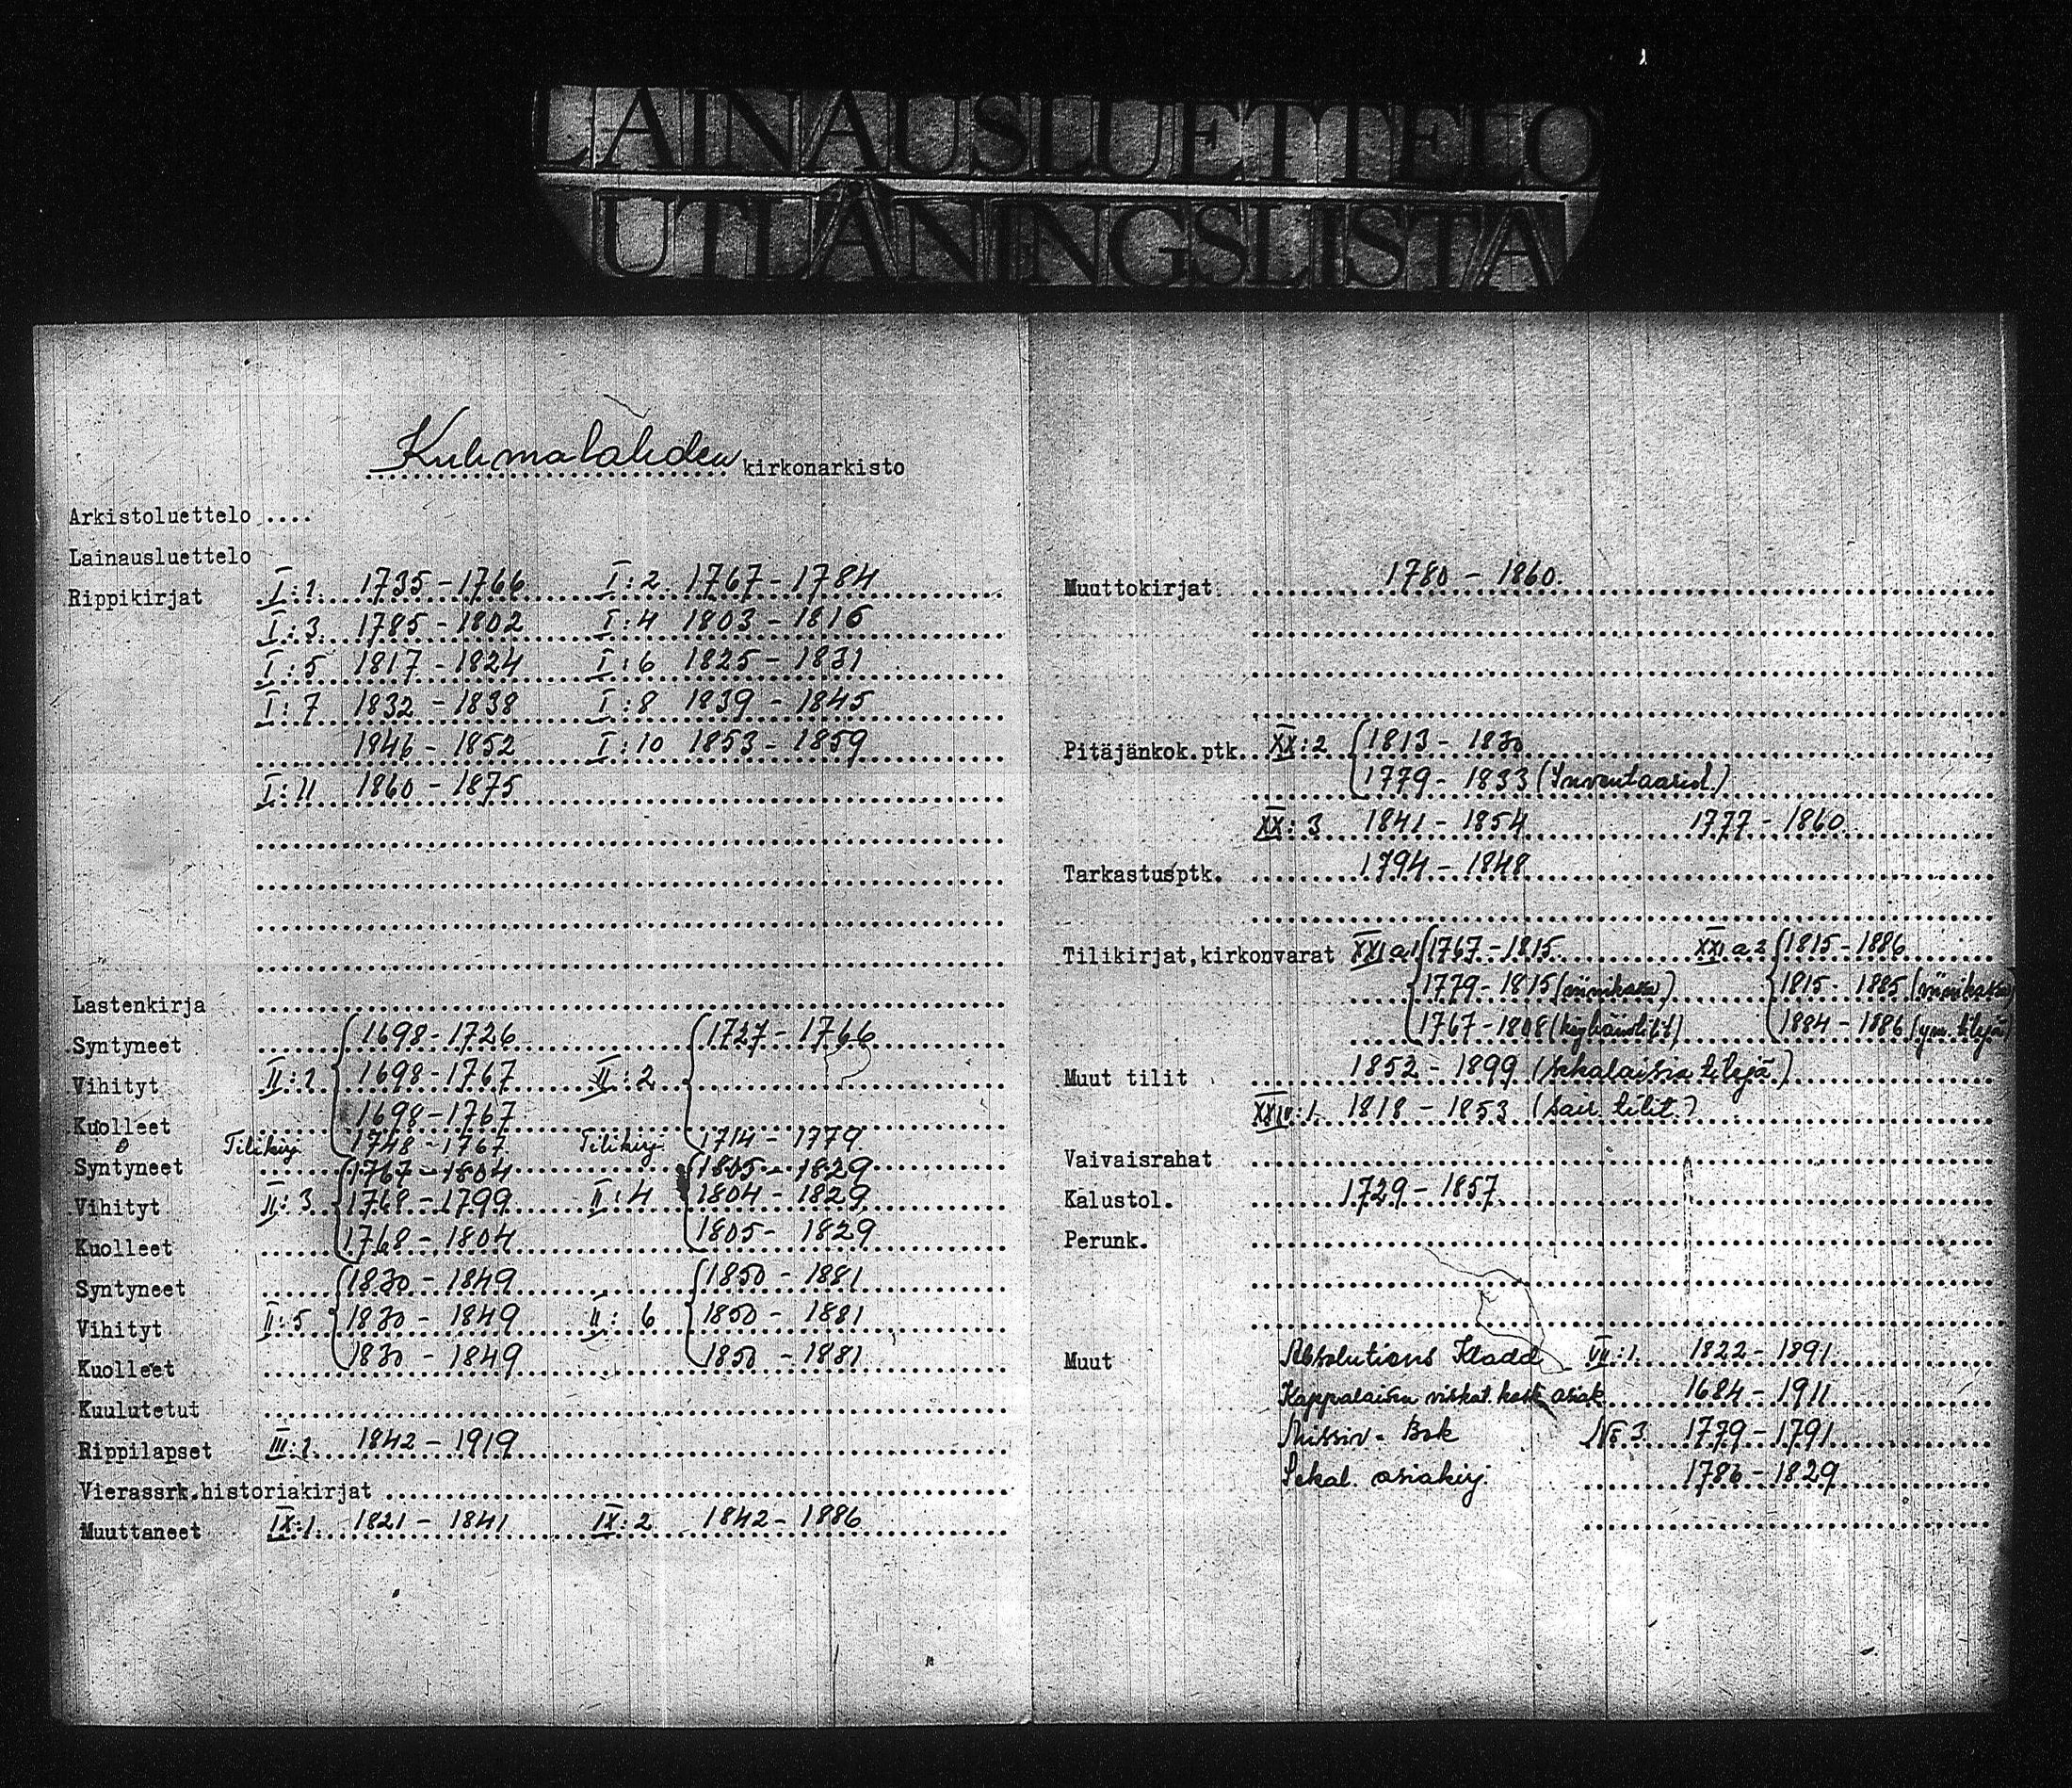 LAINAUSLUETTELO
UTLÅNINGSLISTA
Kuhmalahden kirkonarkisto
Arkistoluettelo ....
Lainausluettelo
Rippikirjat I:1 1735-1766 I:2 1767-1784
I:3 1785-1802 I:4 1803-1816
I:5 1817-1824 I:6 1825-1831
I:7 1832-1838 I:8 1839-1845
1846-1852 I:10 1853-1859
I:11 1860-1875
Lastenkirja
Syntyneet 1698-1726 1727-1766
Vihityt II:1 1698-1767 II:2
Kuolleet 1698-1767
Tilikirj. 1748-1767 Tilikirj. 1714-1779
Syntyneet 1767-1804 1805-1829
Vihityt II:3 1768-1799 II:4 1804-1829
Kuolleet 1768-1804 1805-1829
Syntyneet 1830-1849 1850-1881
Vihityt II:5 1830-1849 II:6 1850-1881
Kuolleet 1830-1849 1850-1881
Kuulutetut
Rippilapset III:1 1842-1919
Vierassrk.historiakirjat
Muuttaneet IX:1 1821-1841 IX:2 1842-1886
Muuttokirjat 1780-1860.
Pitäjänkok.ptk. XX:2 1813-1830
1779-1833 (Inventaariol.)
XX:3 1841-1854 1777-1860
Tarkastusptk. 1794-1848
Tilikirjat,kirkonvarat XXI a1 1767-1815 XXI a2 1815-1886
1779-1815 (viinikassa) 1815-1885 (viinikassa)
1767-1808 (köyhäintilit) 1884-1886 (ym. tilejä)
Muut tilit 1852-1899 (sekalaisia tilejä)
XXIV:1 1818-1853 (sair. tilit)
Vaivaisrahat
Kalustol. 1729-1857
Perunk.
Muut Absolutions Kladd VII:1 1822-1891
Kappalaisen virkat. kosk. asiak. 1684-1911
Missiv-Bok No 3 1779-1791
Sekal. asiakirj. 1786-1829